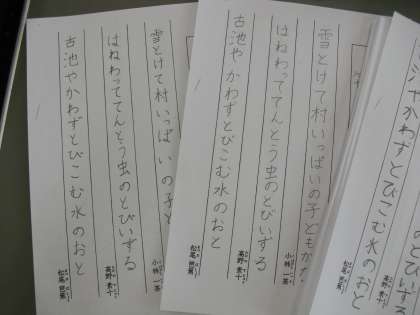 雪とけて村いっぱいの子どもかな
小林一茶
はねわっててんとう虫のとびいずる
高野素十
古池やかわずとびこむ水のおと
松尾芭蕉
雪とけて村いっぱいの子ど
小林一茶
はねわっててんとう虫のとびいずる
高野素十
古池やかわずとびこむ水のおと
松尾芭蕉
のとびいずる
高野素十
かわずとびこむ水のおと
松尾芭蕉